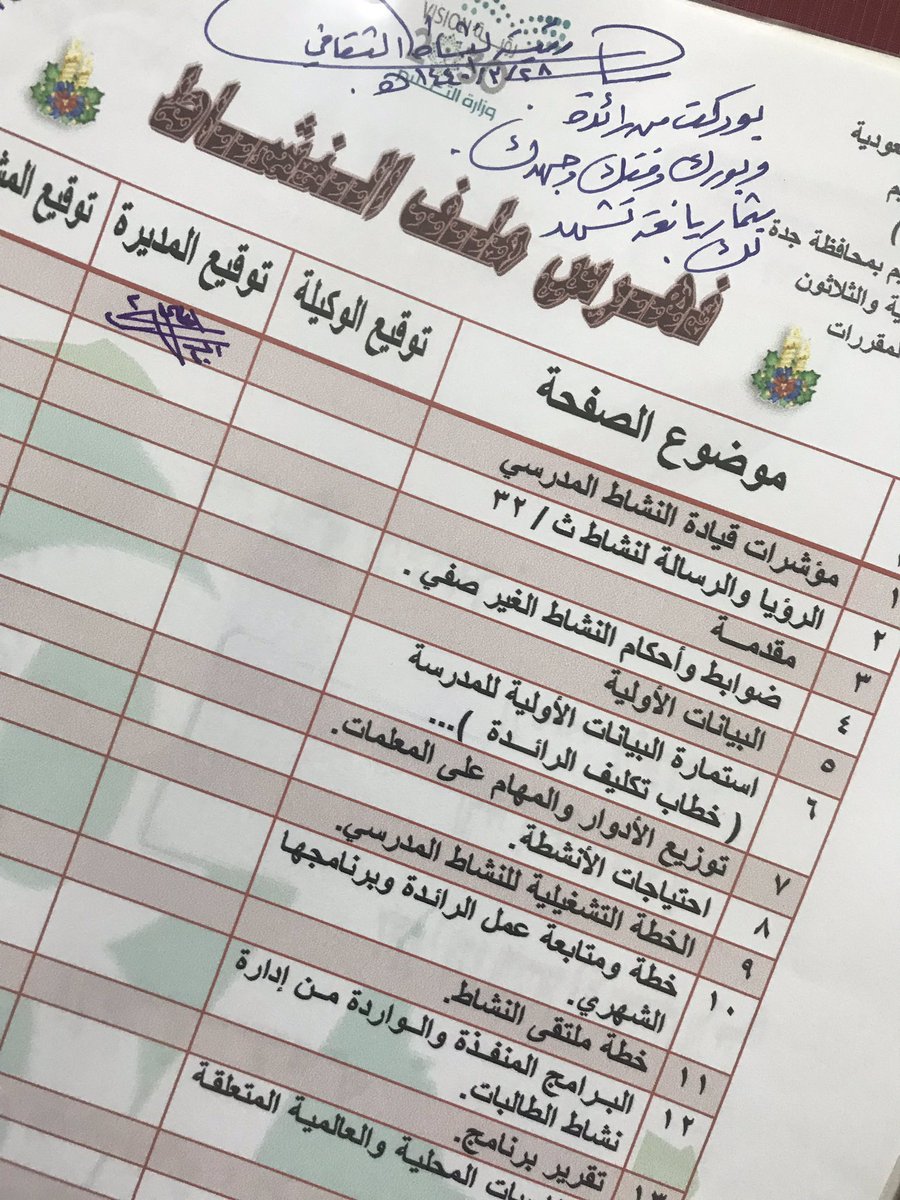 VISION
وزارة التعليم
النشاط الثقافي
بوركت من رائدة
وبورك وقتك وجهدك .
بثمار يانعة تشهد
لك .
عودية
يم
)
يم بمحافظة جدة
ية والثلاثون
لمقررات
فهرس ملف النشاط
موضوع الصفحة
توقيع الوكيلة
توقيع المديرة
توقيع المش
١ مؤشرات قيادة النشاط المدرسي
٢ الرؤيا والرسالة لنشاط ث / ٣٢
٣ مقدمـــة
٤ ضوابط وأحكام النشاط الغير صفي .
٥ البيانات الأولية
٦ استمارة البيانات الأولية للمدرسة
( خطاب تكليف الرائــدة )...
٧ توزيع الأدوار والمهام على المعلمات.
٨ احتياجات الأنشطة.
٩ الخطة التشغيلية للنشاط المدرسي.
١٠ خطة ومتابعة عمل الرائدة وبرنامجها
الشهري.
١١ خطة ملتقى النشاط.
١٢ البرامج المنفذة والواردة من إدارة
نشاط الطالبات.
١٣ تقرير برنامج.
بات المحلية والعالمية المتعلقة